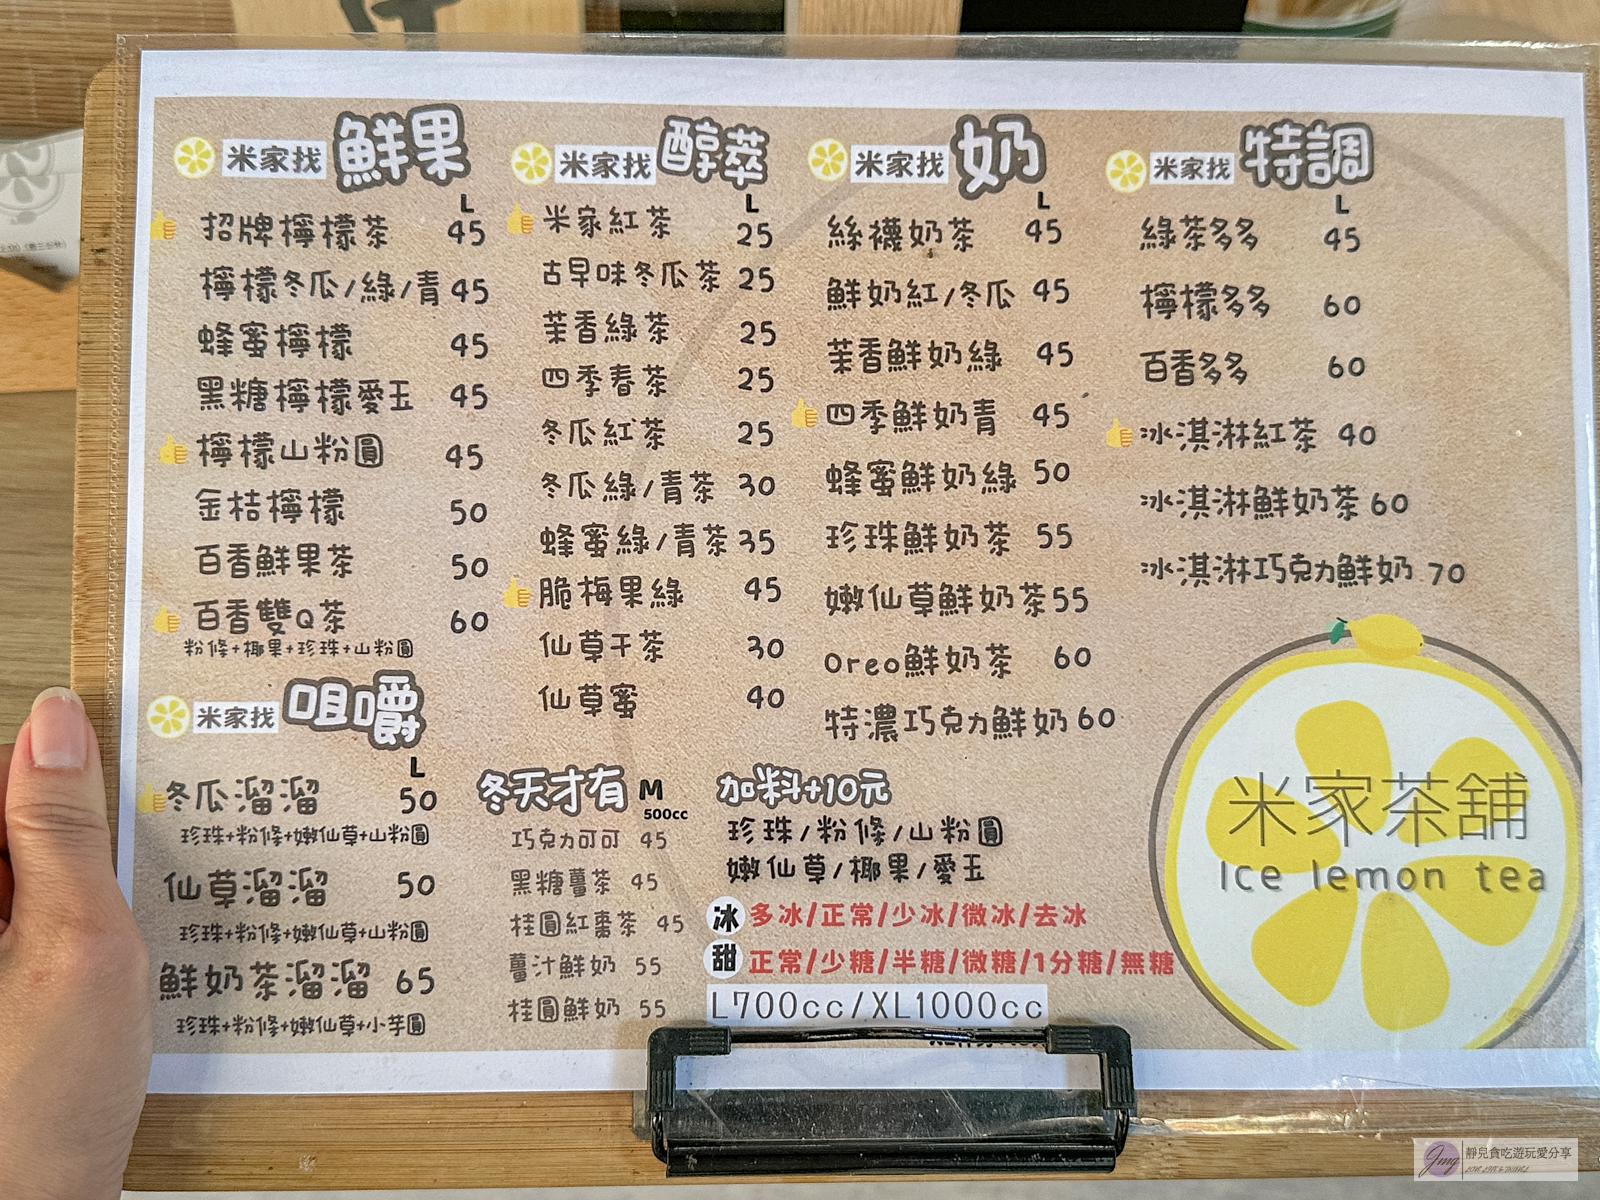 米家找 鮮果
L
招牌檸檬茶 45
檸檬冬瓜/綠/青 45
蜂蜜檸檬 45
黑糖檸檬愛玉 45
檸檬山粉圓 45
金桔檸檬 50
百香鮮果茶 50
百香雙Q茶 60
粉條+椰果+珍珠+山粉圓
米家找 咀嚼
L
冬瓜溜溜 50
珍珠+粉條+嫩仙草+山粉圓
仙草溜溜 50
珍珠+粉條+嫩仙草+山粉圓
鮮奶茶溜溜 65
珍珠+粉條+嫩仙草+小芋圓
米家找 醇萃
L
米家紅茶 25
古早味冬瓜茶 25
茉香綠茶 25
四季春茶 25
冬瓜紅茶 25
冬瓜綠/青茶 30
蜂蜜綠/青茶 35
脆梅果綠 45
仙草干茶 30
仙草蜜 40
冬天才有 M
500cc
巧克力可可 45
黑糖薑茶 45
桂圓紅棗茶 45
薑汁鮮奶 55
桂圓鮮奶 55
米家找 奶
L
絲襪奶茶 45
鮮奶紅/冬瓜 45
茉香鮮奶綠 45
四季鮮奶青 45
蜂蜜鮮奶綠 50
珍珠鮮奶茶 55
嫩仙草鮮奶茶 55
Oreo鮮奶茶 60
特濃巧克力鮮奶 60
加料+10元
珍珠/粉條/山粉圓
嫩仙草/椰果/愛玉
冰 多冰/正常/少冰/微冰/去冰
甜 正常/少糖/半糖/微糖/1分糖/無糖
L700cc/XL1000cc
米家找 特調
L
綠茶多多 45
檸檬多多 60
百香多多 60
冰淇淋紅茶 40
冰淇淋鮮奶茶 60
冰淇淋巧克力鮮奶 70
米家茶舖
Ice lemon tea
靜兒貪吃遊玩愛分享